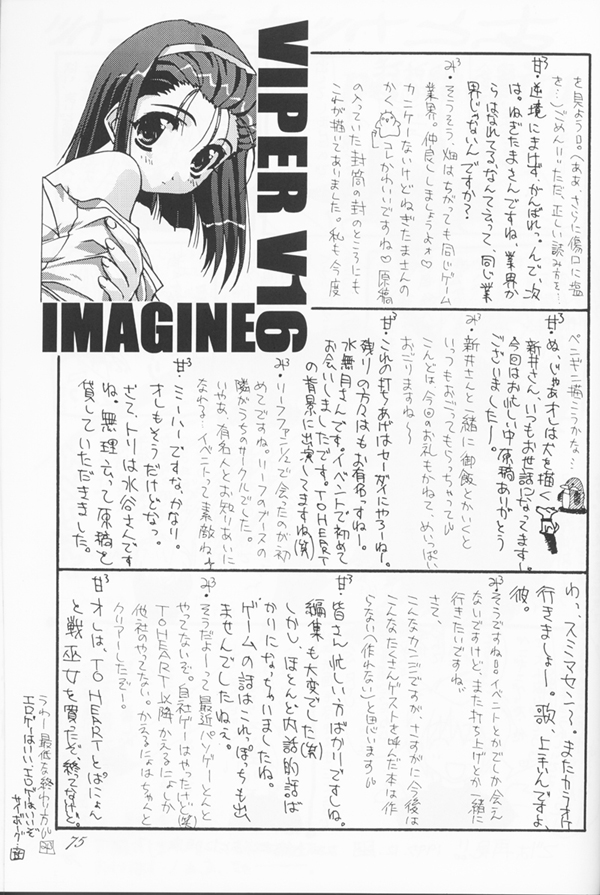 VIPER V16
IMAGINE
を見ようョ。(ああ、さらに傷口に塩
を…)ごめんいただ、正しい読み方を…
甘³・逆境にまけず、がんばれっ。んで、次
は。ねぎたまさんですね、業界が
らはなれてる、なんて云って、同じ業
界じゃないんですか?
み³・そうそう、畑はちがっても同じゲーム
業界。仲良ししましょうよォ♡
カンケーないけどねぎたまさんの
かく コレかわいいですね♡原稿
の入っていた封筒の封のところにも
これが描いてありました。私も今度
ペニギニ描こうかな…
甘³・ぬ、じゃあオレは犬を描く
新井さん、いつもお世話になってます。
今回はお忙しい中原稿ありがとう
ございましたー。
み³・新井さんと一緒に御飯とかいくと
いっつもおごってもらっちゃって
こんどは、今回のお礼もかねて、めいっぱい
おごりますね〜
甘³・これの打ちあげはセーダイにやろーね。
残りの方々はもお有名っすねー。
水無月さんです。イベントで初めて
お会いしましたです。TO HEART
の背景に出演してますね(笑)
み³・リーフファンジンで会ったのが初
めてですね。リーフのブースの
隣がうちのサークルでした。
いやあ、有名人とお知りあいに
なれる…イベントって素敵ね。
甘³・ミーハーですな、かなり。
オレもそうだけどなっ。
さて、トリは水谷さんです
ね。無理云って原稿を
貸していただきました。
わい、スミマセン〜。またカラオケ
行きましょー。歌、上手いんですよ、
彼。
み³・そうですね。イベントとかでしか会え
ないですけど、また打ち上げとか一緒に
行きたいですね
さて、
こんなカンジですが、さすがに今後は
こんなたくさんゲストを呼んだ本は作
らない(作れない)と思います
甘³・皆さん忙しい方ばかりですしね。
編集も大変でした(笑)
しかし、ほとんど内説的話ば
かりになっちゃいましたね。
ゲームの話はこれっぽっちも出
ませんでしたねぇ。
み³・そうだよーって最近パソゲーとんと
やってないぞ。自社ゲーはやったけど(笑)
TO HEART以降かえるにょしか
他社のやってない。かえるにょはちゃんと
クリアーしたぞー。
甘³・オレは、TO HEARTとぱにょん
と戦巫女を買ったぞ、終ってないけど。
うわー最低な終わり方
エロゲーはいい、エロゲーはいいぞ
75